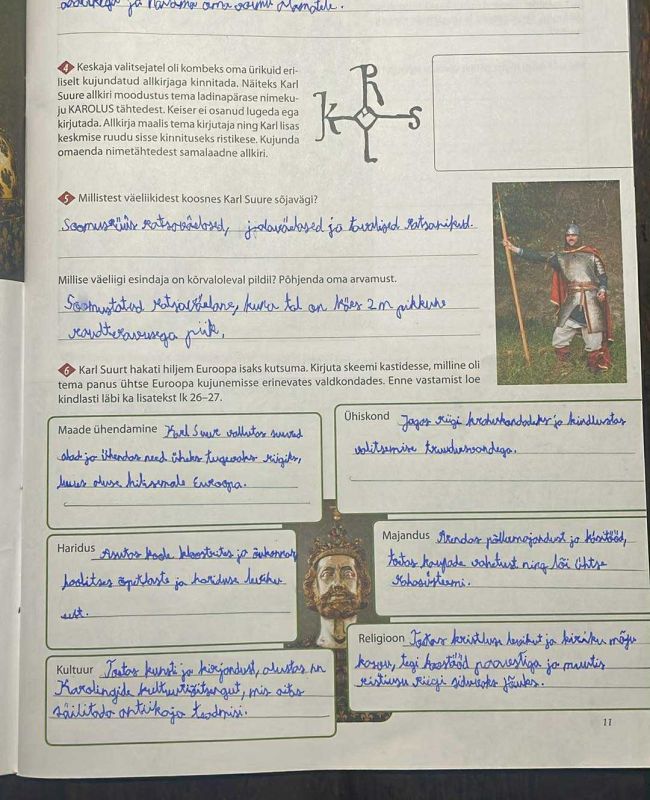 ja oma
4 Keskaja valitsejatel oli kombeks oma ürikuid eri-
liselt kujundatud allkirjaga kinnitada. Näiteks Karl
Suure allkiri moodustus tema ladinapärase nimeku-
ju KAROLUS tähtedest. Keiser ei osanud lugeda ega
kirjutada. Allkirja maalis tema kirjutaja ning Karl lisas
keskmise ruudu sisse kinnituseks ristikese. Kujunda
omaenda nimetähtedest samalaadne allkiri.
R
K S
L
5 Millistest väeliikidest koosnes Karl Suure sõjavägi?
Soomusrüüs ratsaväelased, jalaväelased ja tavalised ratsanikud.
Millise väeliigi esindaja on kõrvaloleval pildil? Põhjenda oma arvamust.
Soomustatud ratsaväelane, kuna tal on käes 2 m pikkune
raudteravusega piik,
6 Karl Suurt hakati hiljem Euroopa isaks kutsuma. Kirjuta skeemi kastidesse, milline oli
tema panus ühtse Euroopa kujunemisse erinevates valdkondades. Enne vastamist loe
kindlasti läbi ka lisatekst lk 26–27.
Maade ühendamine Karl Suur vallutas suured
alad ja ühendas need üheks tugevaks riigiks,
luues aluse hilisemale Euroopa.
Ühiskond Jagas riigi krahvkondadeks ja kindlustas
valitsemise truudusvandega.
Haridus Asutas koole kloostrites ja õukonnas,
koolitses õpiklaste ja hariduse leviku
eest.
Majandus Arendas põllumajandust ja käsitööd,
toetas kaupade vahetust ning lõi ühtse
rahasüsteemi.
Kultuur Toetas kunsti ja kirjandust, alustas nn
Karolingide kultuuritõusngut, mis aitas
säilitada antiikaja teadmisi.
Religioon Toetas kristluse levikut ja kiriku mõju
kasvu, tegi koostööd paavstiga ja muutis
ristiusu riigi siduvaks jõuks.
11